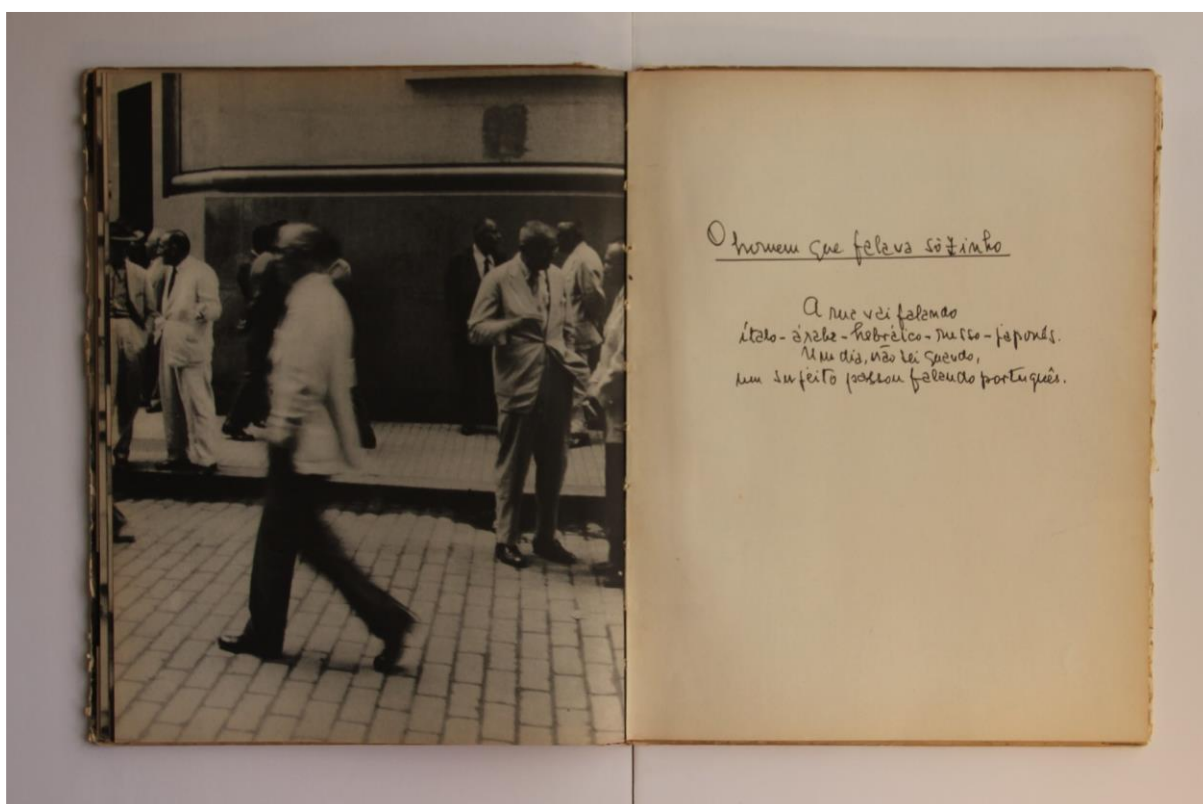 O homem que falava sòzinho
A rua vai falando
ítalo-árabe-hebráico-russo-japonês.
Um dia, não sei quando,
um sujeito passou falando português.